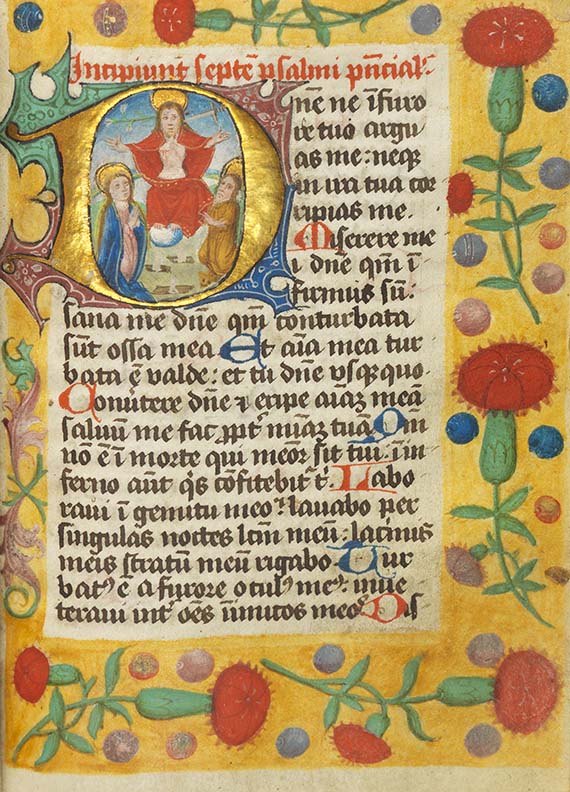 Incipiunt septē psalmi pn̄cial᷑
Dn̄e ne ī furo
re tuo argu
as me : neq̨
in ira tua cor
ripias me .
Miserere me
i dn̄e qm̄ ī
firmus sū :
sana me dn̄e qm̄ conturbata
sūt ossa mea Et aīa mea tur
bata ē valde : et tu dn̄e vsq̨ quo
Conūtere dn̄e ⁊ eripe aīaʒ meā
saluum me fac ꝓpt᷑ mīaʒ tuā Qm̄
nō ē ī morte qui meor᷑ sit tui : ī in
ferno aūt q̄s cōfitebit᷑ t᷑ Labo
raui ī gemitu meo : lauabo per
singulas noctes lc̄m meū : lacrimis
meis stratū meū rigabo Tur
bat᷒ ē a furore ocul᷒ me᷒ : inue
teraui int᷑ oēs īimicos meos Dis